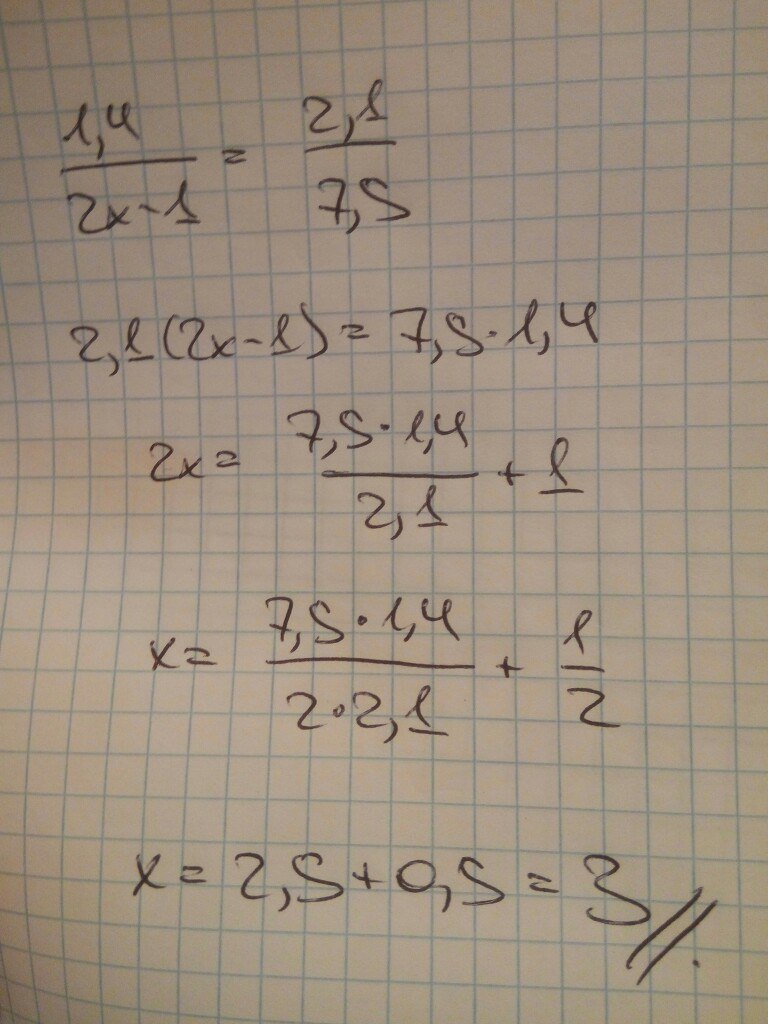 1,4/(2x-1) = 2,1/7,5
2,1(2x-1) = 7,5·1,4
2x = (7,5·1,4)/2,1 + 1
x = (7,5·1,4)/(2·2,1) + 1/2
x = 2,5+0,5 = 3//.